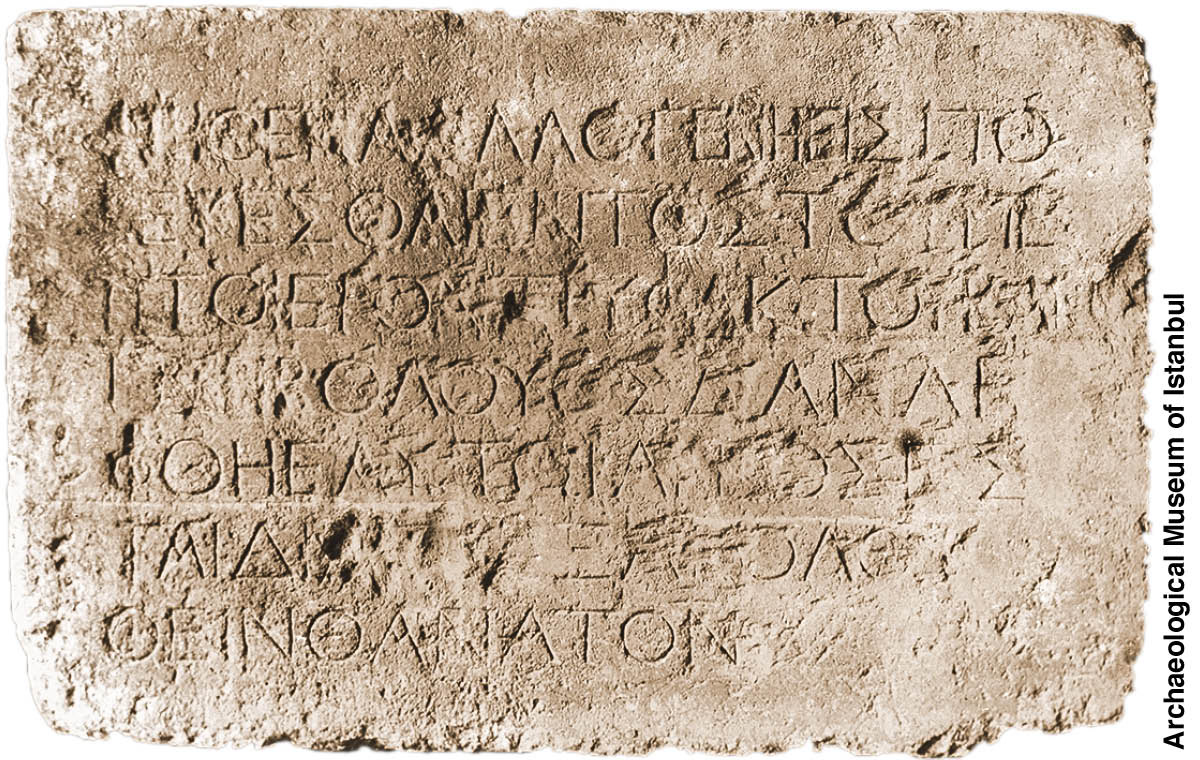 ΜΗΘΕΝΑΑΛΛΟΓΕΝΗΕΙΣΠΟ
ΡΕΥΕΣΘΑΙΕΝΤΟΣΤΟΥΠΕ
ΡΙΤΟΙΕΡΟΝΤΡΥΦΑΚΤΟΥΚΑΙ
ΠΕΡΙΒΟΛΟΥΟΣΔΑΝΛΗ
ΦΘΗΕΑΥΤΩΙΑΙΤΙΟΣΕΣ
ΤΑΙΔΙΑΤΟΕΞΑΚΟΛΟΥ
ΘΕΙΝΘΑΝΑΤΟΝ
Archaeological Museum of Istanbul